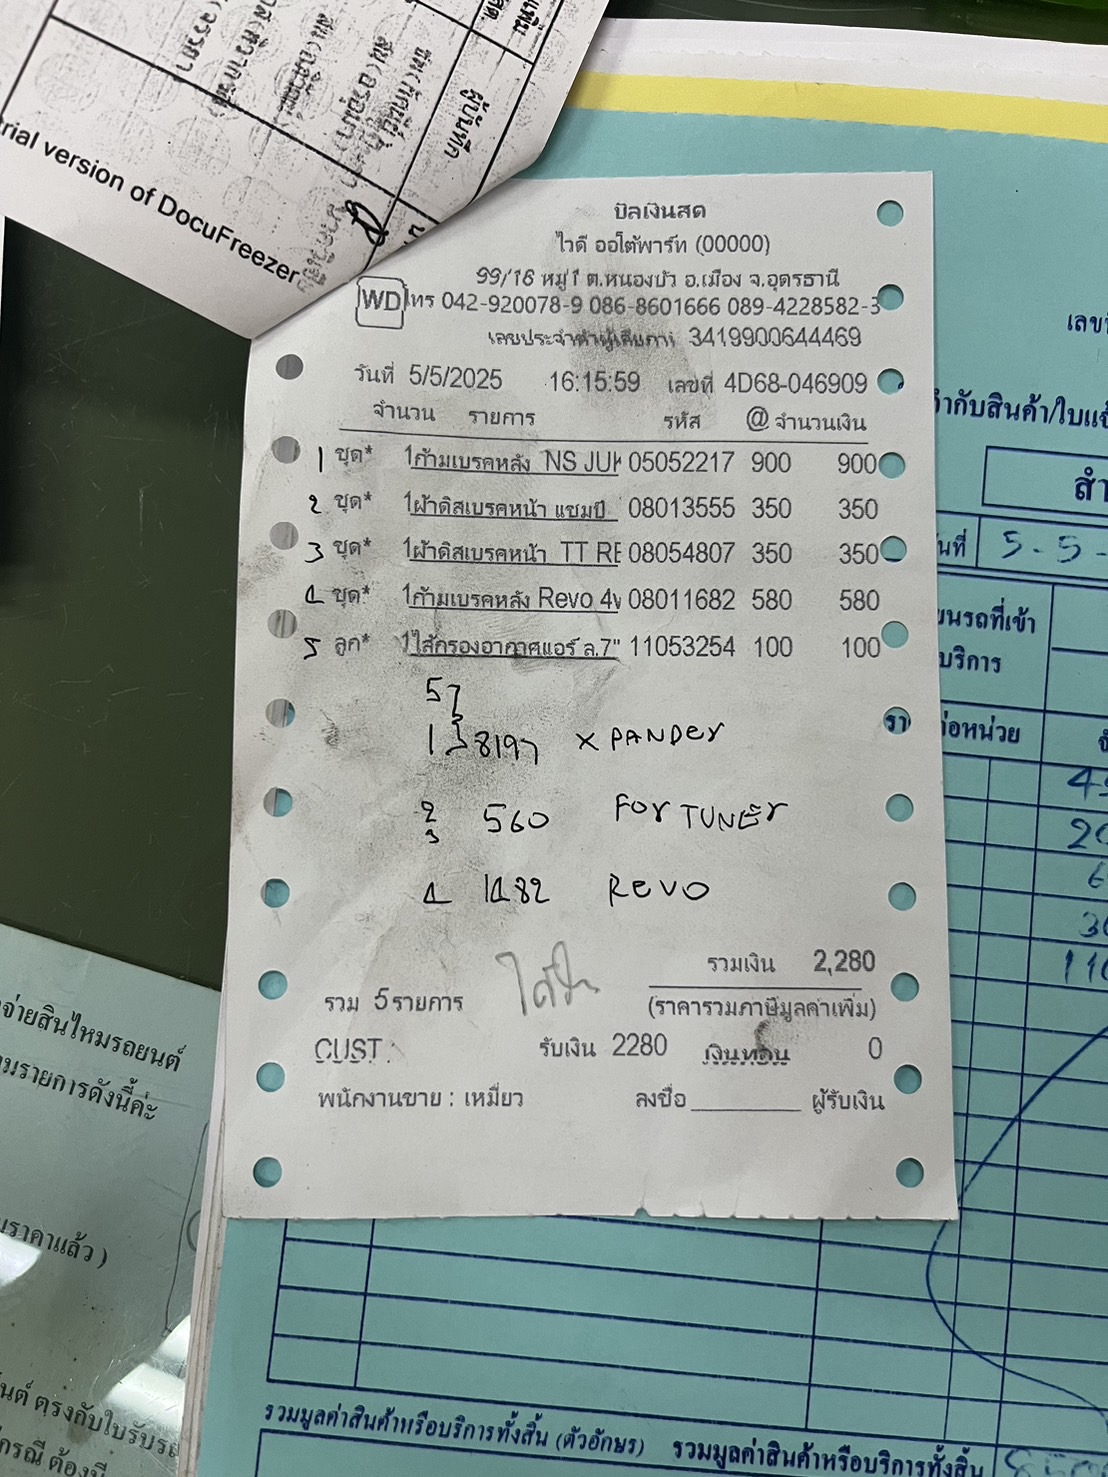 ผู้บันทึก
trial version of DocuFreezer
บิลเงินสด
ไวดี ออโต้พาร์ท (00000)
99/16 หมู่1 ต.หนองบัว อ.เมือง จ.อุดรธานี
WD โทร 042-920078-9 086-8601666 089-4228582-3
เลขประจำตัวผู้เสียภาษี 3419900644469
วันที่ 5/5/2025 16:15:59 เลขที่ 4D68-046909
จำนวน รายการ รหัส @ จำนวนเงิน
1 ชุด* 1ก้ามเบรคหลัง NS JUK 05052217 900 900
2 ชุด* 1ผ้าดิสเบรคหน้า แชมป์ 08013555 350 350
3 ชุด* 1ผ้าดิสเบรคหน้า TT RE 08054807 350 350
4 ชุด* 1ก้ามเบรคหลัง Revo 4w 08011682 580 580
5 ลูก* 1ไส้กรองอากาศแอร์ ล.7" 11053254 100 100
5
1 } 8197 XPANDER
2
3 560 FORTUNER
4 1482 REVO
รวมเงิน 2,280
รวม 5รายการ
(ราคารวมภาษีมูลค่าเพิ่ม)
CUST : รับเงิน 2280 เงินทอน 0
พนักงานขาย : เหมี่ยว ลงชื่อ ผู้รับเงิน
เลขที่
กำกับสินค้า/ใบแจ้
สำ
วันที่ 5-5-
ยนรถที่เข้า
บริการ
รา ต่อหน่วย
จ่ายสินไหมรถยนต์
ามรายการดังนี้ค่ะ
ราคาแล้ว )
ยนต์ ตรงกับใบรับรถ
กรณี ต้องมี
รวมมูลค่าสินค้าหรือบริการทั้งสิ้น (ตัวอักษร) รวมมูลค่าสินค้าหรือบริการทั้งสิ้น